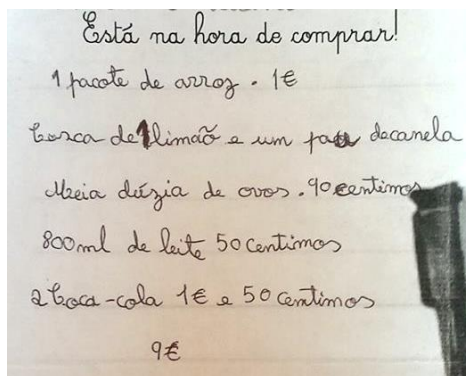 Está na hora de comprar!
1 pacote de arroz . 1€
Casca de 1 limão e um pau decanela
Meia dúzia de ovos . 90 centimos
800ml de leite 50 centimos
2 Coca-cola 1€ e 50 centimos
9€